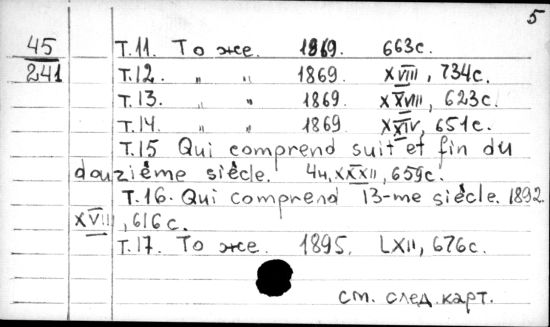 5
45 Т.11. То же. 1869. 663с.
241 Т.12. " " 1869. XVIII, 734с.
Т.13. " " 1869. XXVIII, 623с.
Т.14. " " 1869. XXIV, 651с.
Т.15 Qui comprend suit et fin du
douzième siècle. 4н, XXXII, 659с.
Т.16. Qui comprend 13-me siècle. 1892.
XVIII, 616с.
Т.17. То же. 1895. LXII, 676с.
см. след. карт.